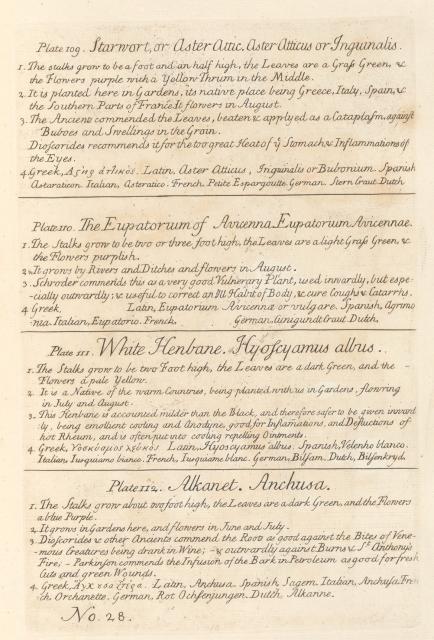 Plate 109. Starwort, or Aster Attic. Aster Atticus or Inguinalis.
1. The stalks grow to be a foot and an half high, the Leaves are a Graſs Green, &
the Flowers purple with a Yellow Thrum in the Middle.
2. It is planted here in Gardens, its native place being Greece, Italy, Spain, &
the Southern Parts of France. It flowers in August.
3. The Ancients commended the Leaves, beaten & applyed as a Cataplaſm, against
Buboes and Swellings in the Groin.
Dioſcorides recommends it for the too great Heat of ẙ Stomach & Inflammations of
the Eyes.
4. Greek, Latin, Aster Atticus, Inguinalis or Bubonium. Spanish
Astaraticon. Italian, Asteratico. French. Petite Espargoutte. German. Stern Craut. Dutch
Plate 110. The Eupatorium of Avicenna. Eupatorium Avicennae.
1. The Stalks grow to be two or three foot high, the Leaves are a light Graſs Green, &
the Flowers purplish.
2. It grows by Rivers and Ditches and flowers in August.
3. Schroder commends this as a very good Vulnerary Plant, used inwardly, but espe-
-cially outwardly; & useful to correct an Ill Habit of Body & cure Coughs & Catarrhs.
4. Greek, Latin, Eupatorium Avicennæ or vulgare. Spanish, Agrimo
nia. Italian, Eupatorio. French, German. Cunigundt Craut. Dutch.
Plate 111. White Henbane. Hyoſcyamus albus.
1. The Stalks grow to be two Foot high, the Leaves are a dark Green, and the -
Flowers a pale Yellow.
2. It is a Native of the warm Countries, being planted with us in Gardens, flowring
in July and August.
3. This Henbane is accounted milder than the Black, and therefore safer to be given inward
:ly, being emollient cooling and Anodyne, good for Inflamations, and Defluctions of
hot Rheum, and is often put into cooling repelling Ointments.
4. Greek, Υοσκύαμος λευκός. Latin, Hyoscyamus albus. Spanish, Velenho blanco.
Italian, Iusquiamo bianco. French, Iusquiame blanc. German, Bilſam. Dutch, Bilſenkryd.
Plate 112. Alkanet. Anchusa.
1. The Stalks grow about two foot high, the Leaves are a dark Green, and the Flowers
a blue Purple.
2. It grows in Gardens here, and flowers in June and July.
3. Dioſcorides & other Ancients commend the Root as good against the Bites of Vene-
-mous Creatures being drank in Wine; -& outwardly against Burns & St. Anthony's
Fire; - Parkinſon commends the Infusion of the Bark in Petroleum as good for fresh
Cuts and green Wounds.
4. Greek, Latin, Anchusa. Spanish Sagem. Italian, Anchuſa. Fren
ch, Orchanette. German, Rot Ochſenzungen. Dutch Alkanne.
No. 28.